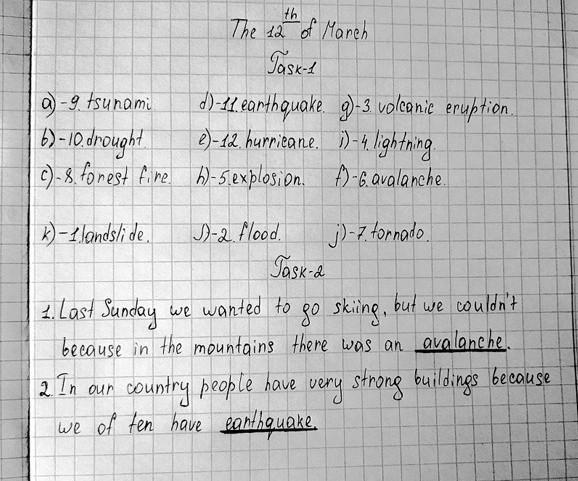 The 12th of March
Task-1
a)-9. tsunami d)-11. earthquake. g)-3. volcanic eruption.
b)-10. drought. e)-12. hurricane. i)-4. lightning.
c)-8. forest fire. h)-5. explosion. f)-6. avalanche.
k)-1. landslide. l)-2. flood. j)-7. tornado.
Task-2
1. Last Sunday we wanted to go skiing, but we couldn't
because in the mountains there was an avalanche.
2. In our country people have very strong buildings because
we of ten have earthquake.